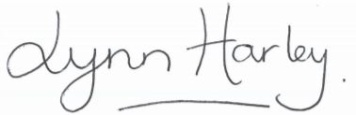 Lynn Harley.